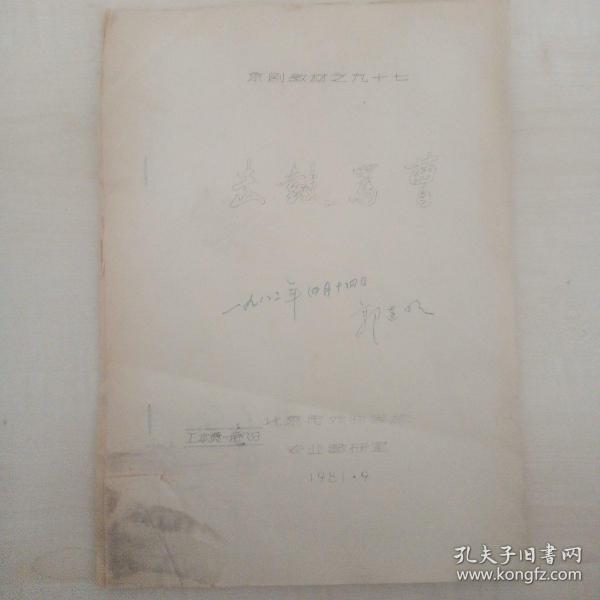 京剧教材之九十七
击鼓骂曹
一九八二年四月十四日
郭
北京市戏
工本费一角
专业教研室
1981.9
孔夫子旧書网
www.kongfz.com